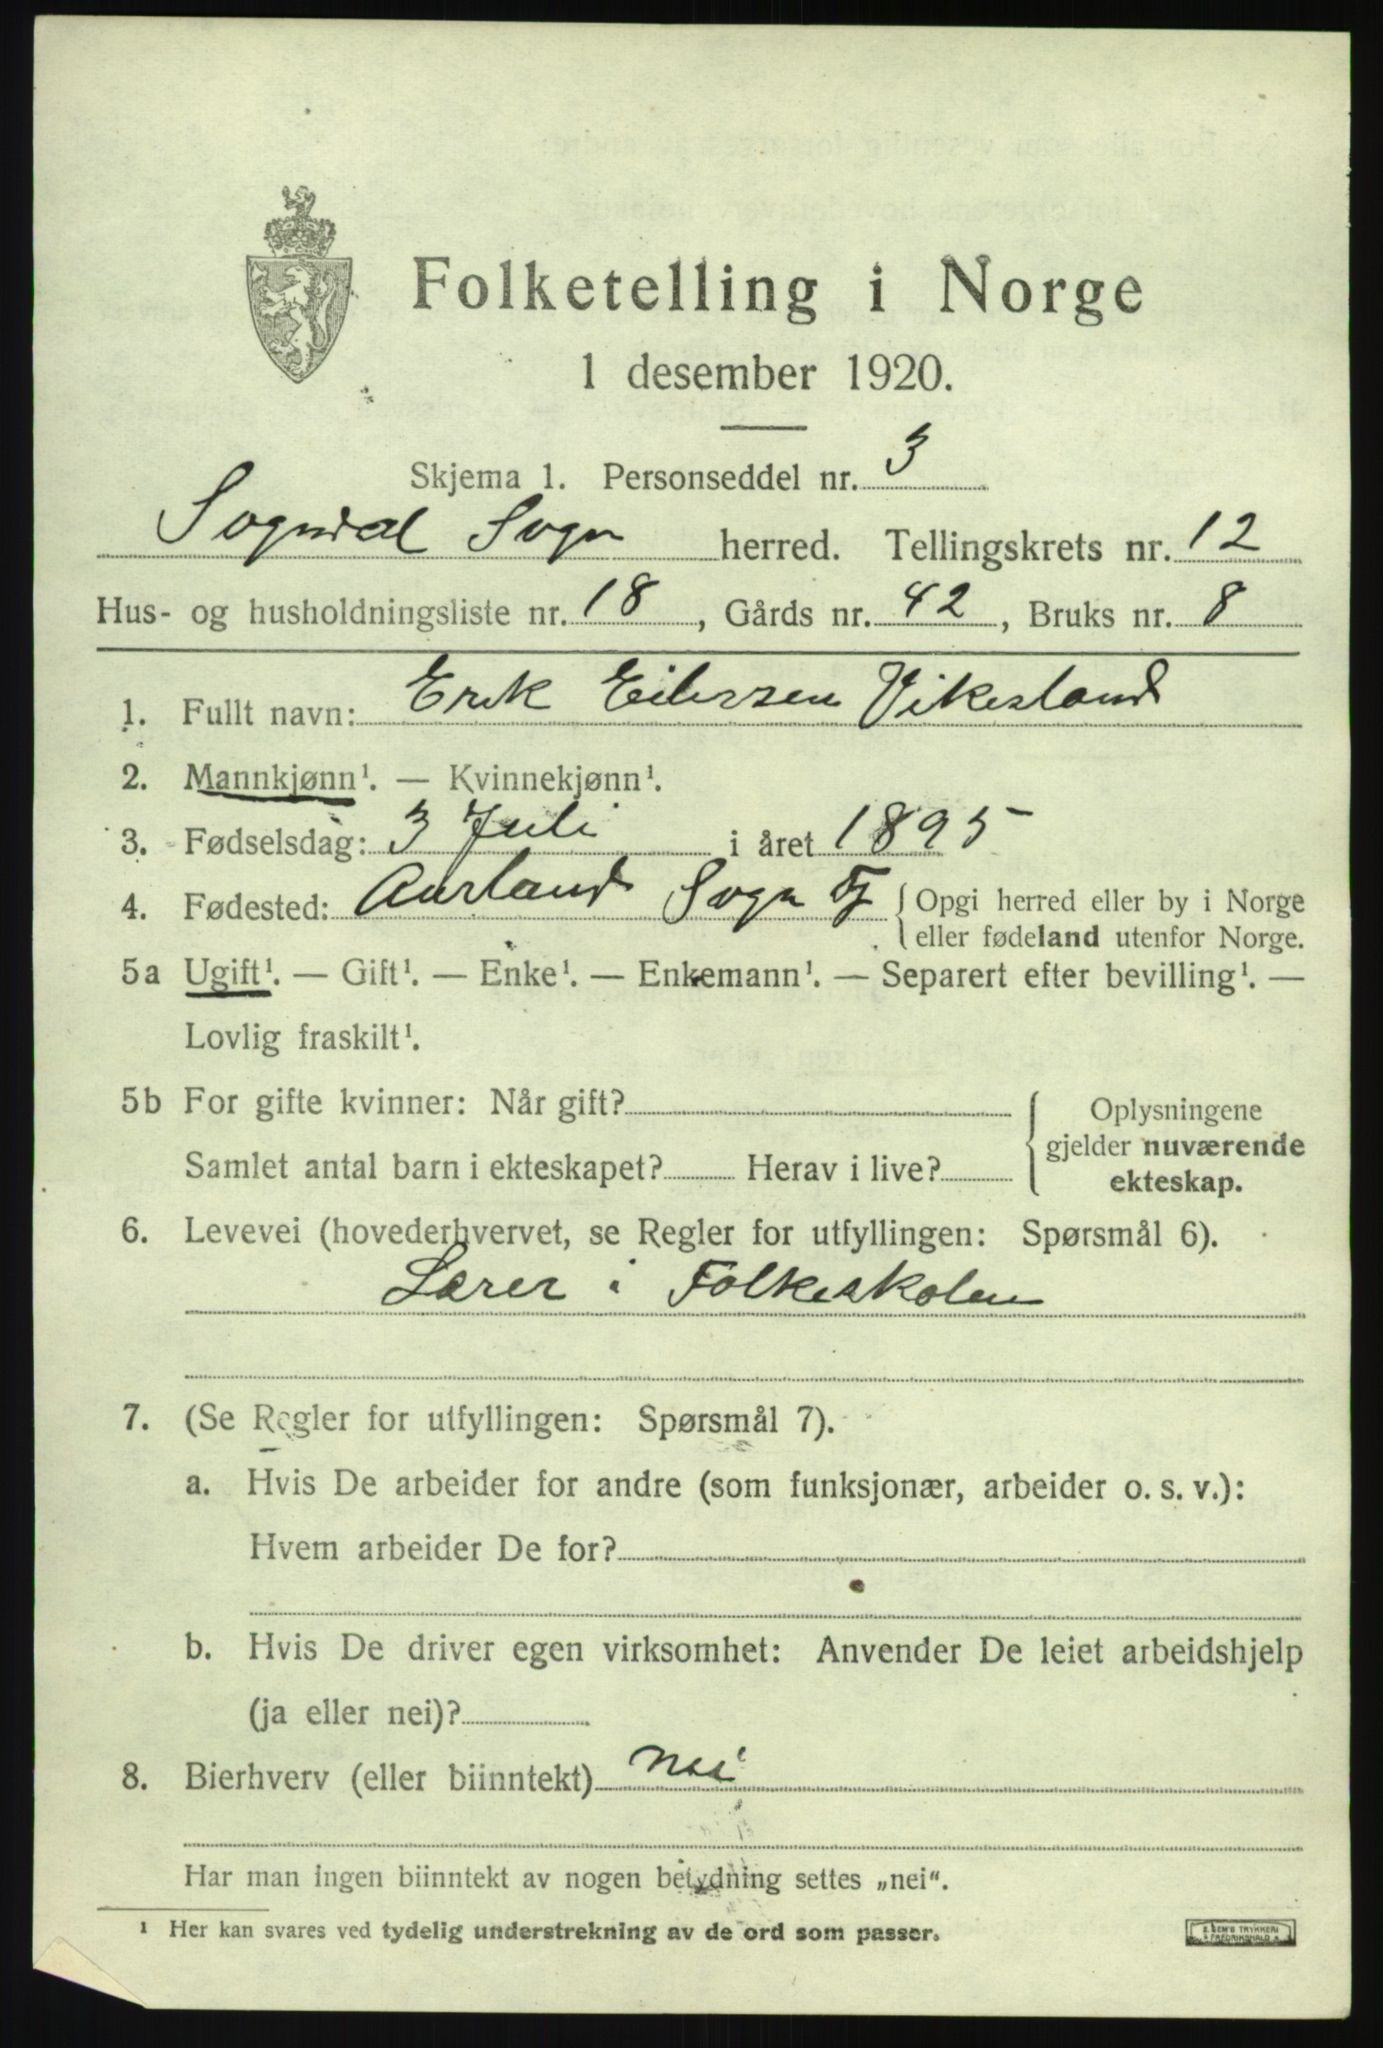 Folketelling i Norge
1 desember 1920.
Skjema 1. Personseddel nr. 3
Sogndal Sogn herred. Tellingskrets nr. 12
Hus- og husholdningsliste nr. 18, Gårds nr. 42, Bruks nr. 8
1. Fullt navn: Erik Eilersen Vikesland
2. Mannkjønn¹. — Kvinnekjønn¹.
3. Fødselsdag: 3 Juli i året 1895
4. Fødested: Aurland Sogn Fj { Opgi herred eller by i Norge
eller fødeland utenfor Norge.
5a Ugift¹. — Gift¹. — Enke¹. — Enkemann¹. — Separert efter bevilling¹. —
Lovlig fraskilt¹.
5b For gifte kvinner: Når gift?
Samlet antal barn i ekteskapet? Herav i live?
{ Oplysningene
gjelder nuværende
ekteskap.
6. Levevei (hovederhvervet, se Regler for utfyllingen: Spørsmål 6).
Lærer i Folkeskolen
7. (Se Regler for utfyllingen: Spørsmål 7).
a. Hvis De arbeider for andre (som funksjonær, arbeider o. s. v.):
Hvem arbeider De for?
b. Hvis De driver egen virksomhet: Anvender De leiet arbeidshjelp
(ja eller nei)?
8. Bierhverv (eller biinntekt) nei
Har man ingen biinntekt av nogen betydning settes „nei".
¹ Her kan svares ved tydelig understrekning av de ord som passer.
TRYKKERI
FREDRIKSHALD